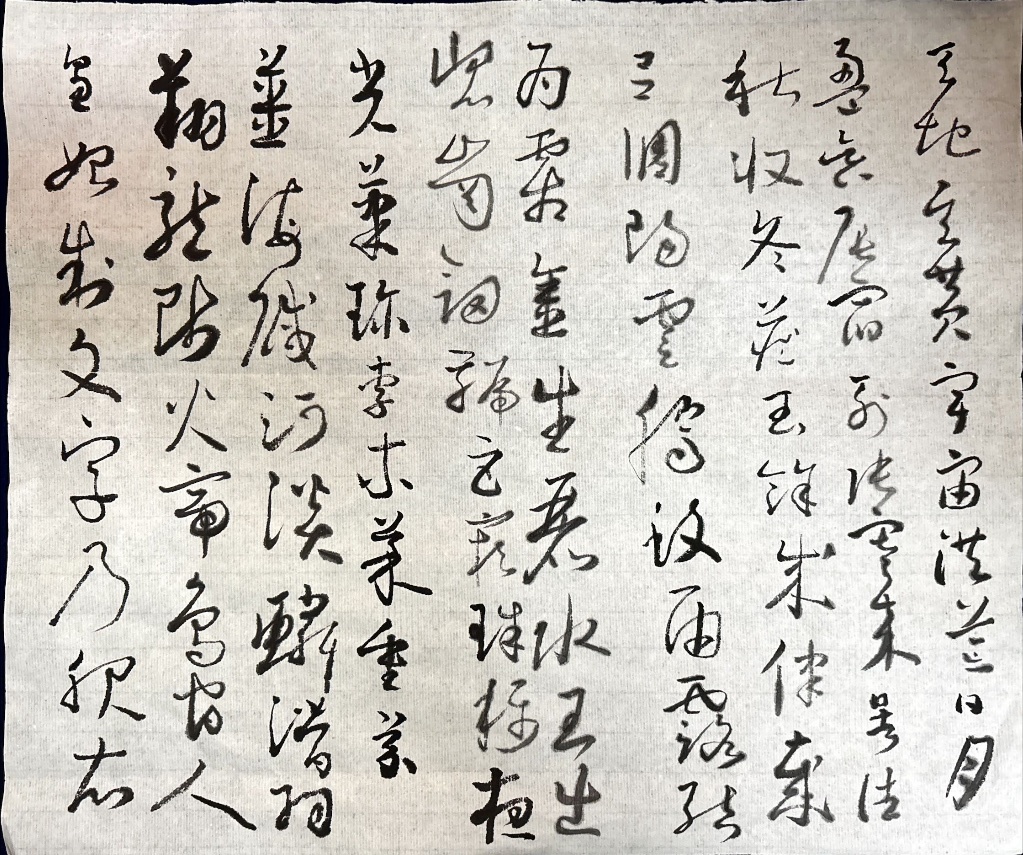 天地玄黃宇宙洪荒日月
盈昃辰宿列張寒來暑往
秋收冬藏閏餘成律歲
呂調陽雲騰致雨露結
為霜金生麗水玉出
崑崗劍號巨闕珠稱夜
光菓珍李柰菜重芥
薑海鹹河淡鱗潛羽
翔龍師火帝鳥官人
皇始制文字乃服衣